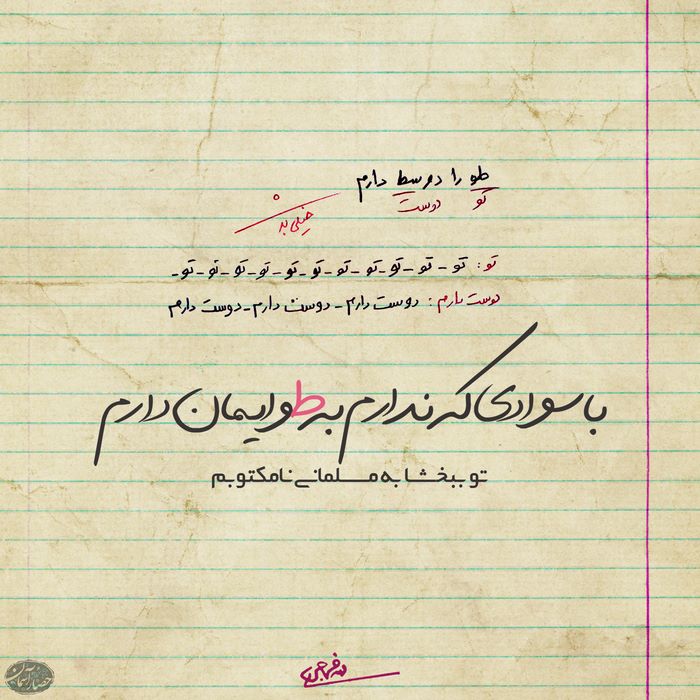 طو را دوسط دارم
تو دوست
خیلی بد ۰
تو: تو - تو - تو - تو - تو - تو - تو - تو - تو - تو - تو -
دوست دارم: دوست دارم - دوست دارم - دوست دارم
با سوادی که ندارم به طو ایمان دارم
تو ببخشا به مسلمانی نامکتوبم